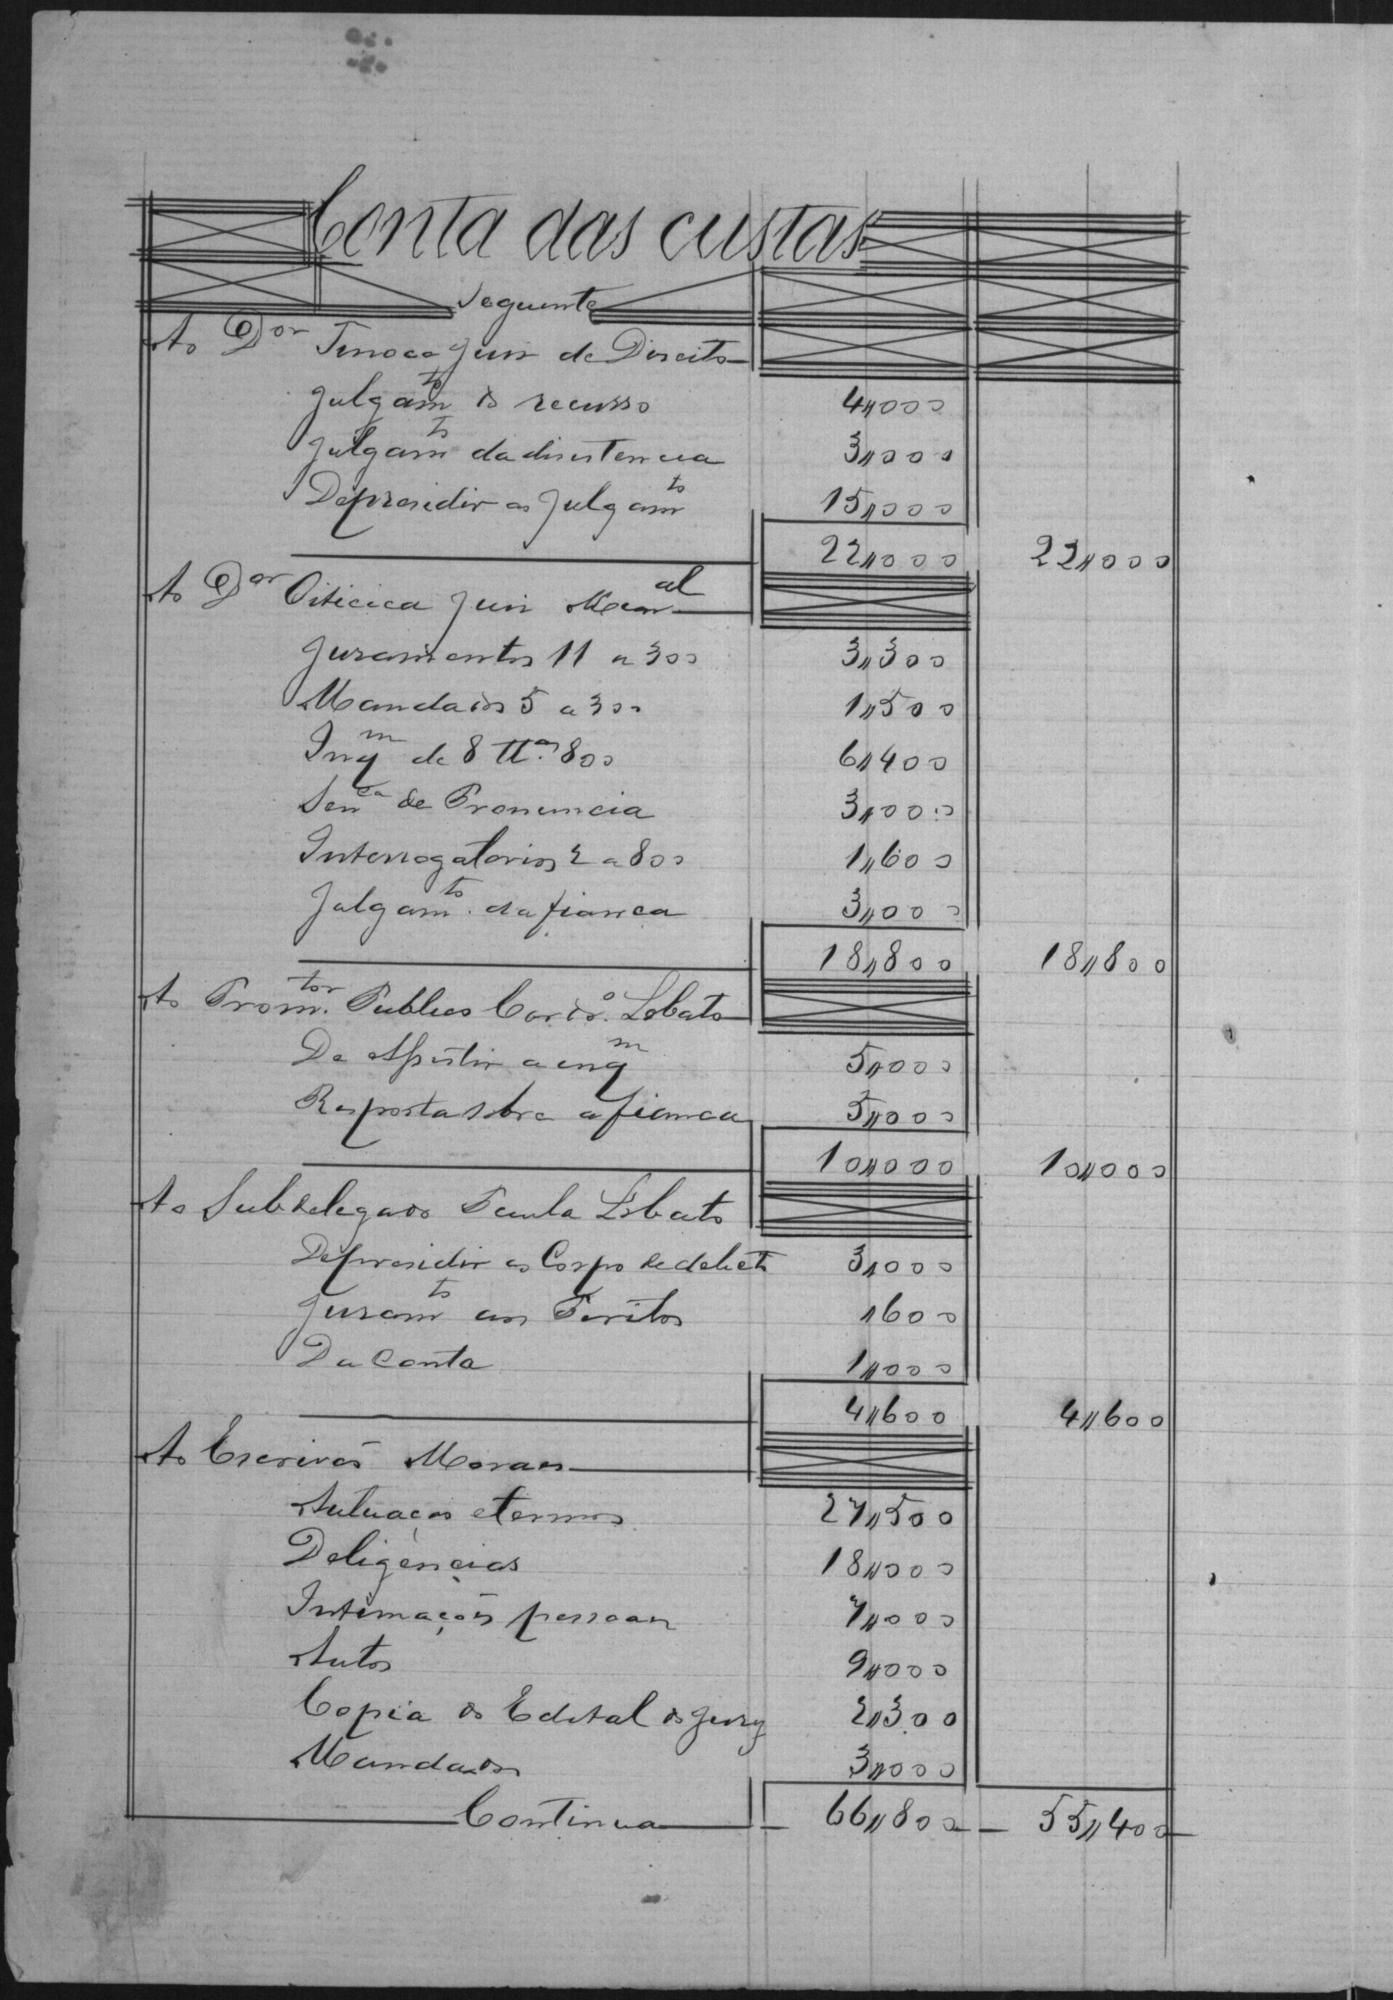 Conta das custas
Seguente
Ao Dor Tinoco Juis de Direito
Julgamto do recurso 4,,000
Julgamto da disistencia 3,,000
De presidir ao Julgamto 15,,000
22,,000 22,,000
Ao Dor Oiticica Juis Munal
Juramentos 11 a 300 3,,300
Mandados 5 a 300 1,,500
Inqm de 8 ttas. 800 6,,400
Senca de Pronuncia 3,,000
Interrogatorios 2 a 800 1,,600
Julgamto. da fianca 3,,000
18,,800 18,,800
Ao Promtor. Publico Lobato
De Assistir a inqm 5,,000
Resposta sobre a fianca 5,,000
10,,000 10,,000
Ao Subdelegado Paula Lobato
De presidir ao Corpo de delicto 3,,000
Juramto aos Peritos ,,600
Da Conta 1,,000
4,,600 4,,600
Ao Escrivão Moraes
Autuação e termos 27,,500
Deligencias 18,,000
Intimações pessoaes 7,,000
Autos 9,,000
Copia do Edital do Jury 2,,300
Mandados 3,,000
Continua 66,,800 55,,400